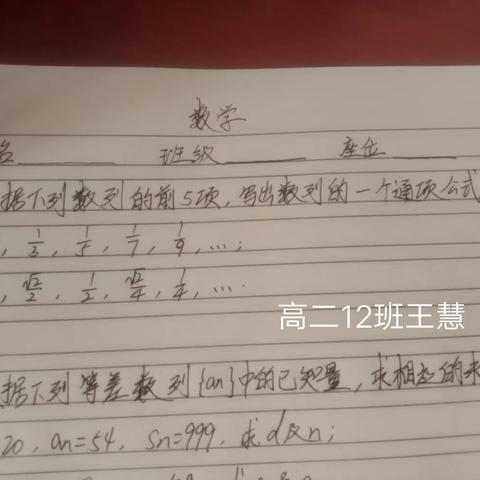 数学
名______ 班级______ 座位______
据下列数列的前5项,写出数列的一个通项公式
, 1/3, 1/5, 1/7, 1/9, …;
, √2/2, 1/2, √2/4, 1/4, ….
高二12班王慧
据下列等差数列{an}中的已知量,求相应的未
20, an=54, Sn=999, 求d及n;